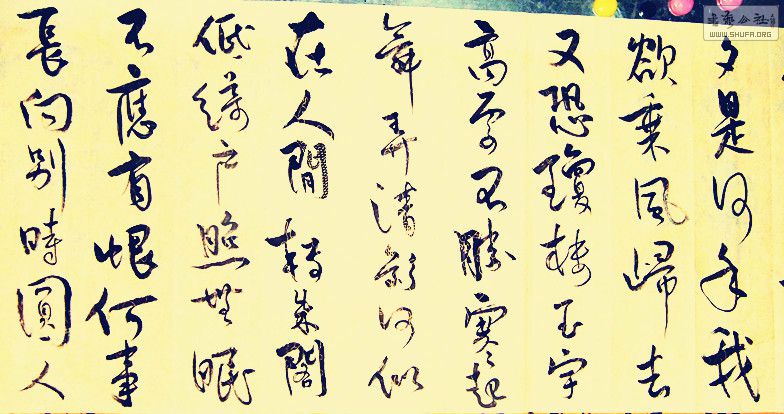 夕是何年我
欲乘風歸去
又恐瓊樓玉宇
高處不勝寒起
舞弄清影何似
在人間轉朱閣
低綺户照無眠
不應有恨何事
長向別時圓人
WWW.SHUFA.ORG